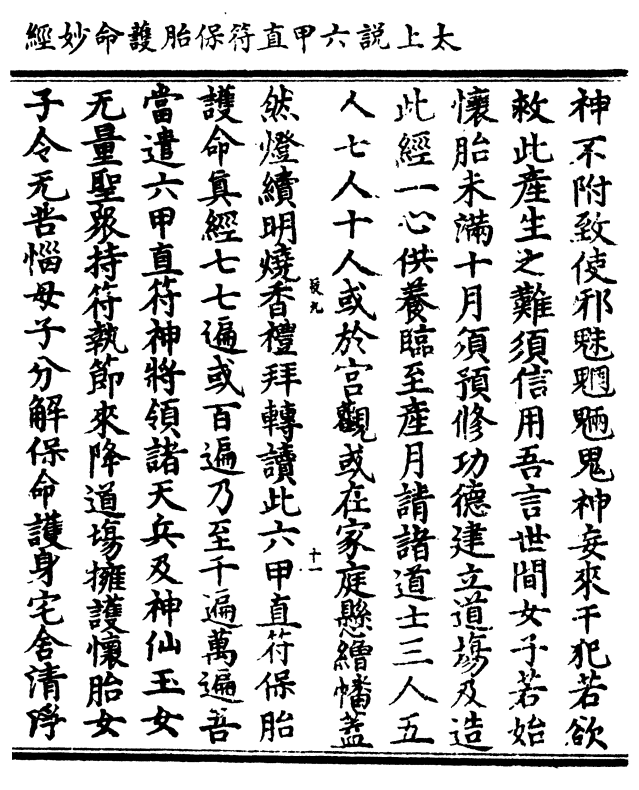 太上説六甲直符保胎護命妙經
神不附致使邪魅魍魎鬼神妄來干犯若欲
救此產生之難須信用吾言世間女子若始
懷胎未滿十月須預修功德建立道場及造
此經一心供養臨至產月請諸道士三人五
人七人十人或於宮觀或在家庭懸繒幡蓋
然燈續明燒香禮拜轉讀此六甲直符保胎
護命真經七七遍或百遍乃至千遍萬遍吾
當遣六甲直符神將領諸天兵及神仙玉女
无量聖眾持符執節來降道場擁護懷胎女
子令无苦惱母子分解保命護身宅舍清淨
十一